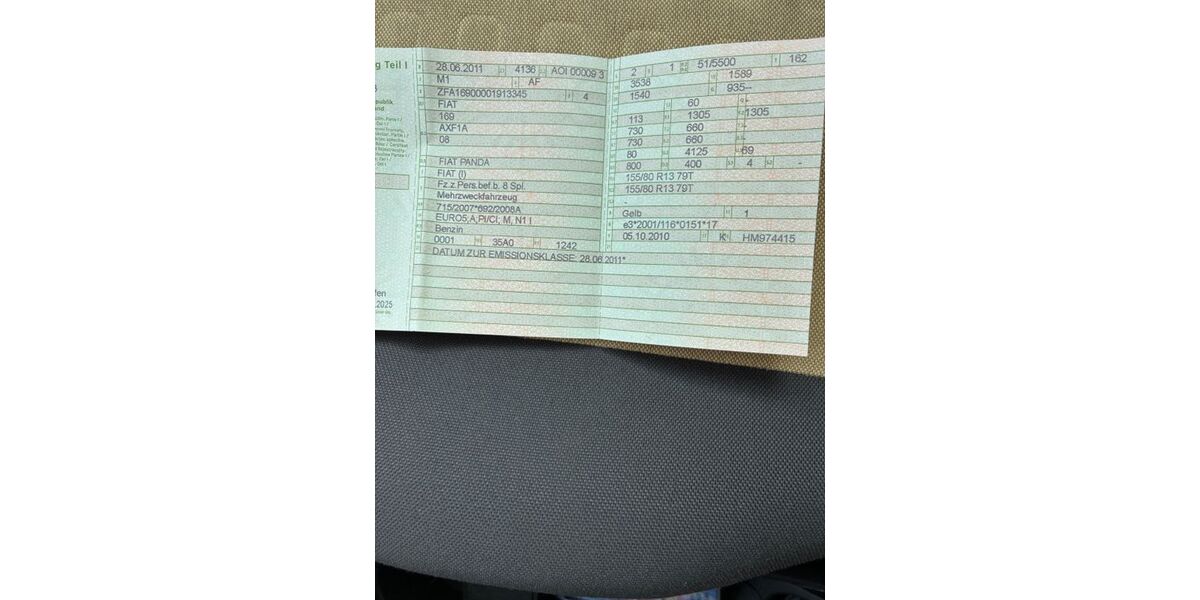 g Teil I
publik
and
fen
2025
28.06.2011 4136 AOI 00009 3
M1 AF
ZFA16900001913345 4
FIAT
169
AXF1A
08
FIAT PANDA
FIAT (I)
Fz.z.Pers.bef.b. 8 Spl.
Mehrzweckfahrzeug
715/2007*692/2008A
EURO5;A;PI/CI; M, N1 I
Benzin
0001 35A0 1242
DATUM ZUR EMISSIONSKLASSE: 28.06.2011*
2 1 51/5500 162
3538 1589
1540 935--
60
113 1305 1305
730 660 -
730 660 -
80 4125 69
800 400 4 -
155/80 R13 79T
155/80 R13 79T
-
Gelb 1
e3*2001/116*0151*17
05.10.2010 K HM974415